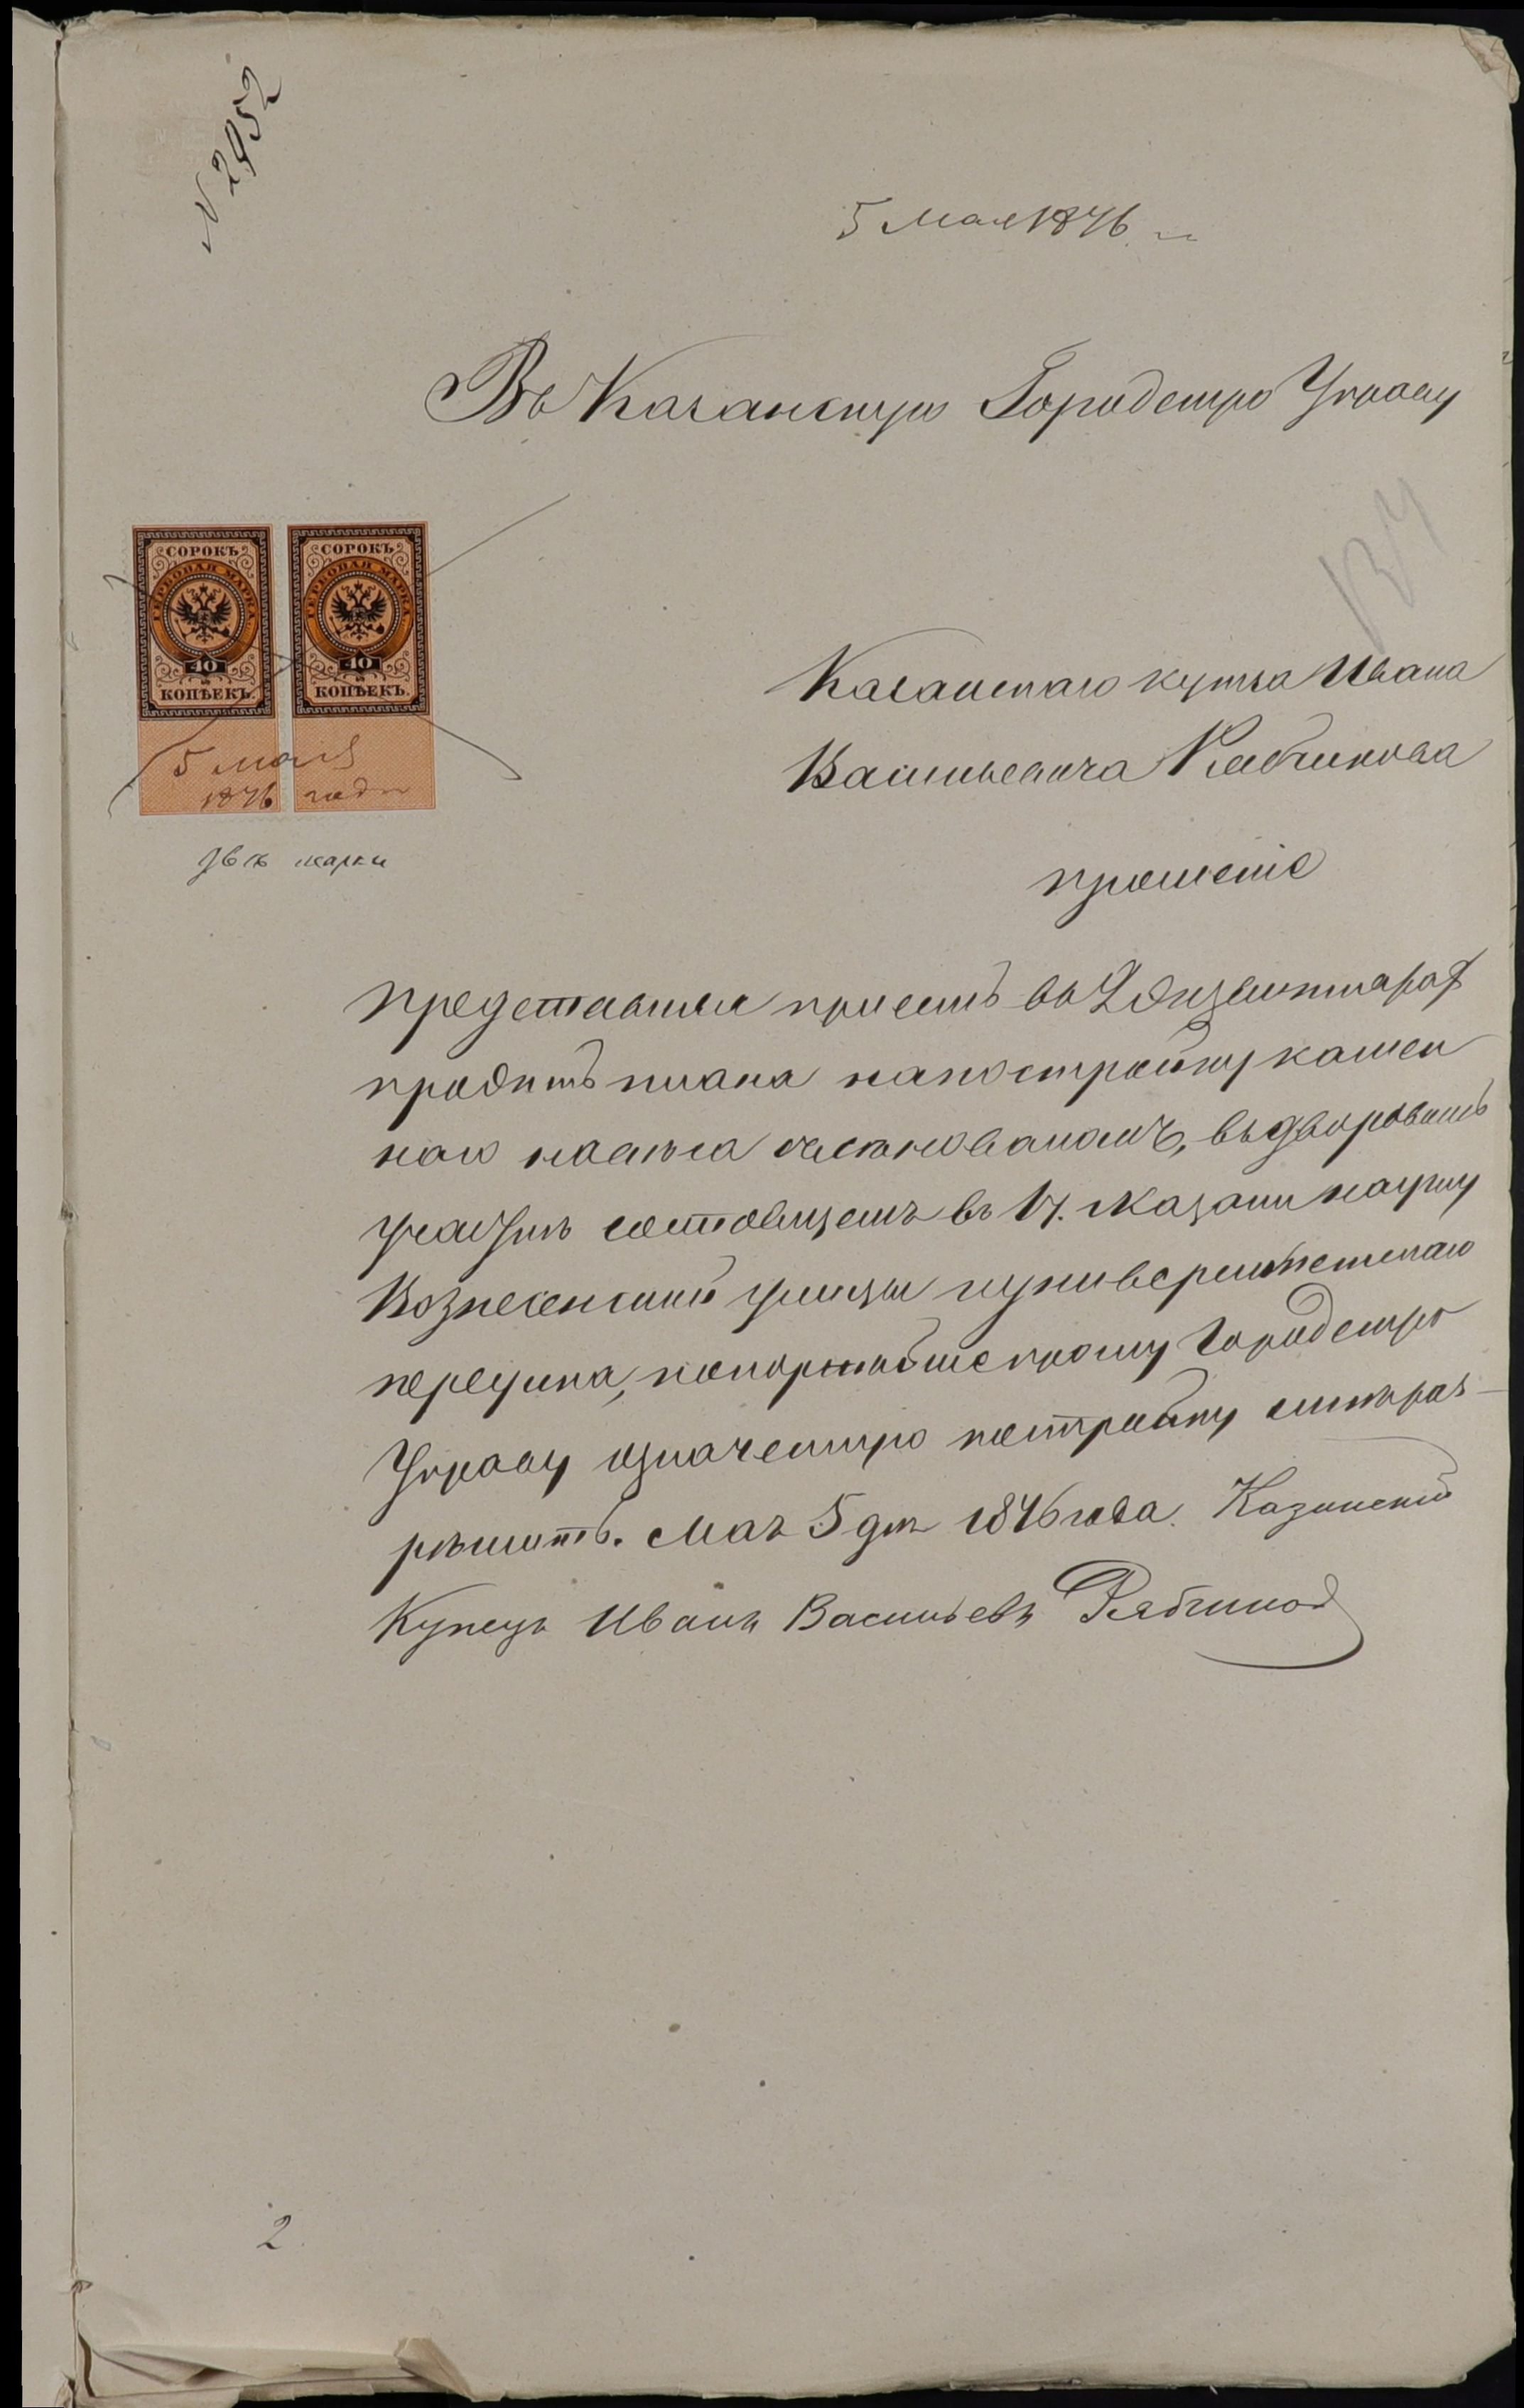 N 2952
5 Мая 1876
Въ Казанскую Городскую Управу
СОРОКЪ
ГЕРБОВАЯ МАРКА
40
КОПѢЕКЪ.
СОРОКЪ
ГЕРБОВАЯ МАРКА
40
КОПѢЕКЪ.
5 мая
1876 года
двѣ марки
Казанскаго купца Ивана
Васильевича Рябчикова
прошеніе
представляя при семъ въ 2 экземплярах
проэктъ плана на постройку камен
наго въ дворовомъ
участкѣ состоящемъ въ г. Казани на углу
Вознесенской улицы и университетскаго
переулка, покорнѣйше прошу Городскую
Управу означенную постройку мнѣ раз-
рѣшить. Мая 5 дня 1876 года. Казанский
Купецъ Иванъ Васильевъ Рябчиков
2